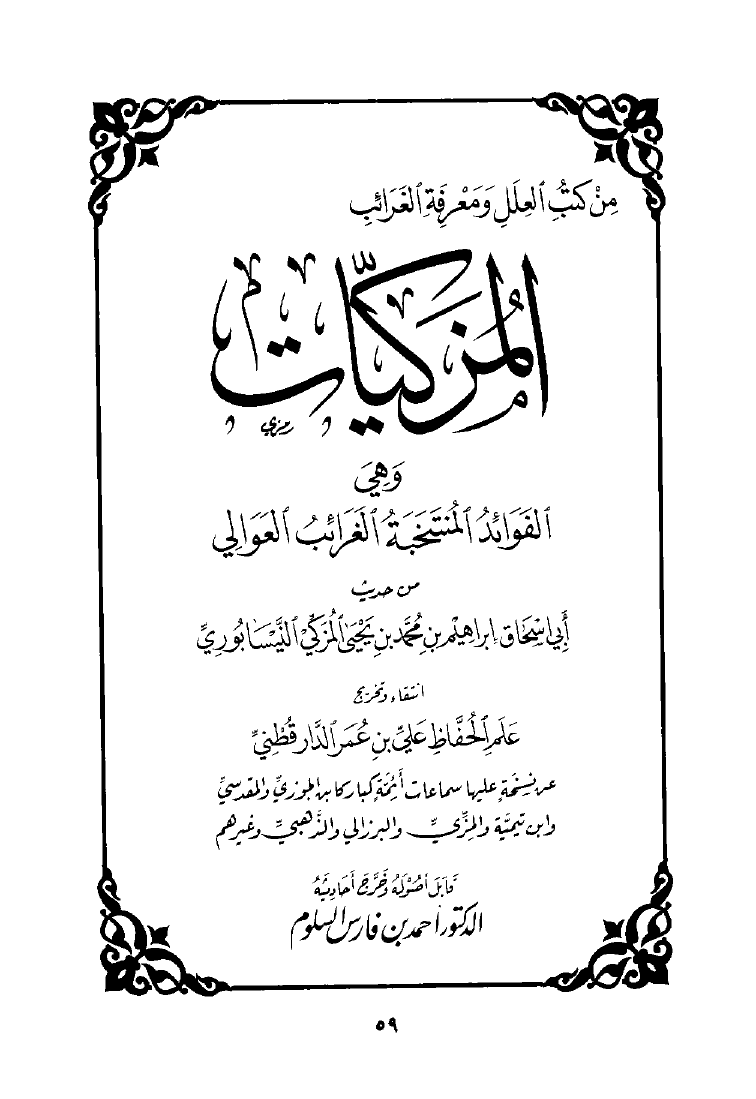 مِنْ كُتُبِ ٱلْعِلَلِ وَمَعْرِفَةِ ٱلْغَرَائِبِ
المُزَكِّيَات
رمزي
وَهِيَ
ٱلْفَوَائِدُ ٱلْمُنْتَخَبَةُ ٱلْغَرَائِبُ ٱلْعَوَالِي
من حديث
أَبِي إِسْحَاق إِبْرَاهِيْم بن مُحَمَّد بنِ يَحْيَى ٱلْمُزَكِّي ٱلنَّيْسَابُورِيِّ
انتقاء وتخريج
عَلَمِ ٱلْحُفَّاظِ عَلِيِّ بنِ عُمَرَ ٱلدَّارَقُطْنِيِّ
عن نسخةٍ عليها سماعات أئمّةٍ كبار كابن الجوزيّ والمقدسيّ
وابن تيميّة والمزّيّ والبرزالي والذّهبيّ وغيرهم
قَابَلَ أُصُولَهُ وَخَرَّجَ أَحَادِيثَهُ
الدكتور أحمد بن فارس السلوم
٥٩